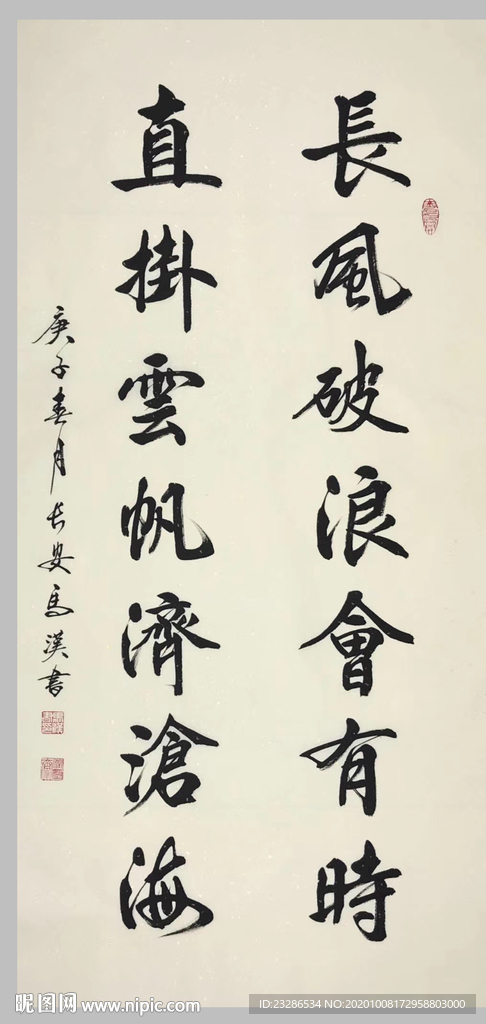 長風破浪會有時
直掛雲帆濟滄海
庚子春月长安馬漢書
昵图网 www.nipic.com
ID:23286534 NO:20201008172958803000